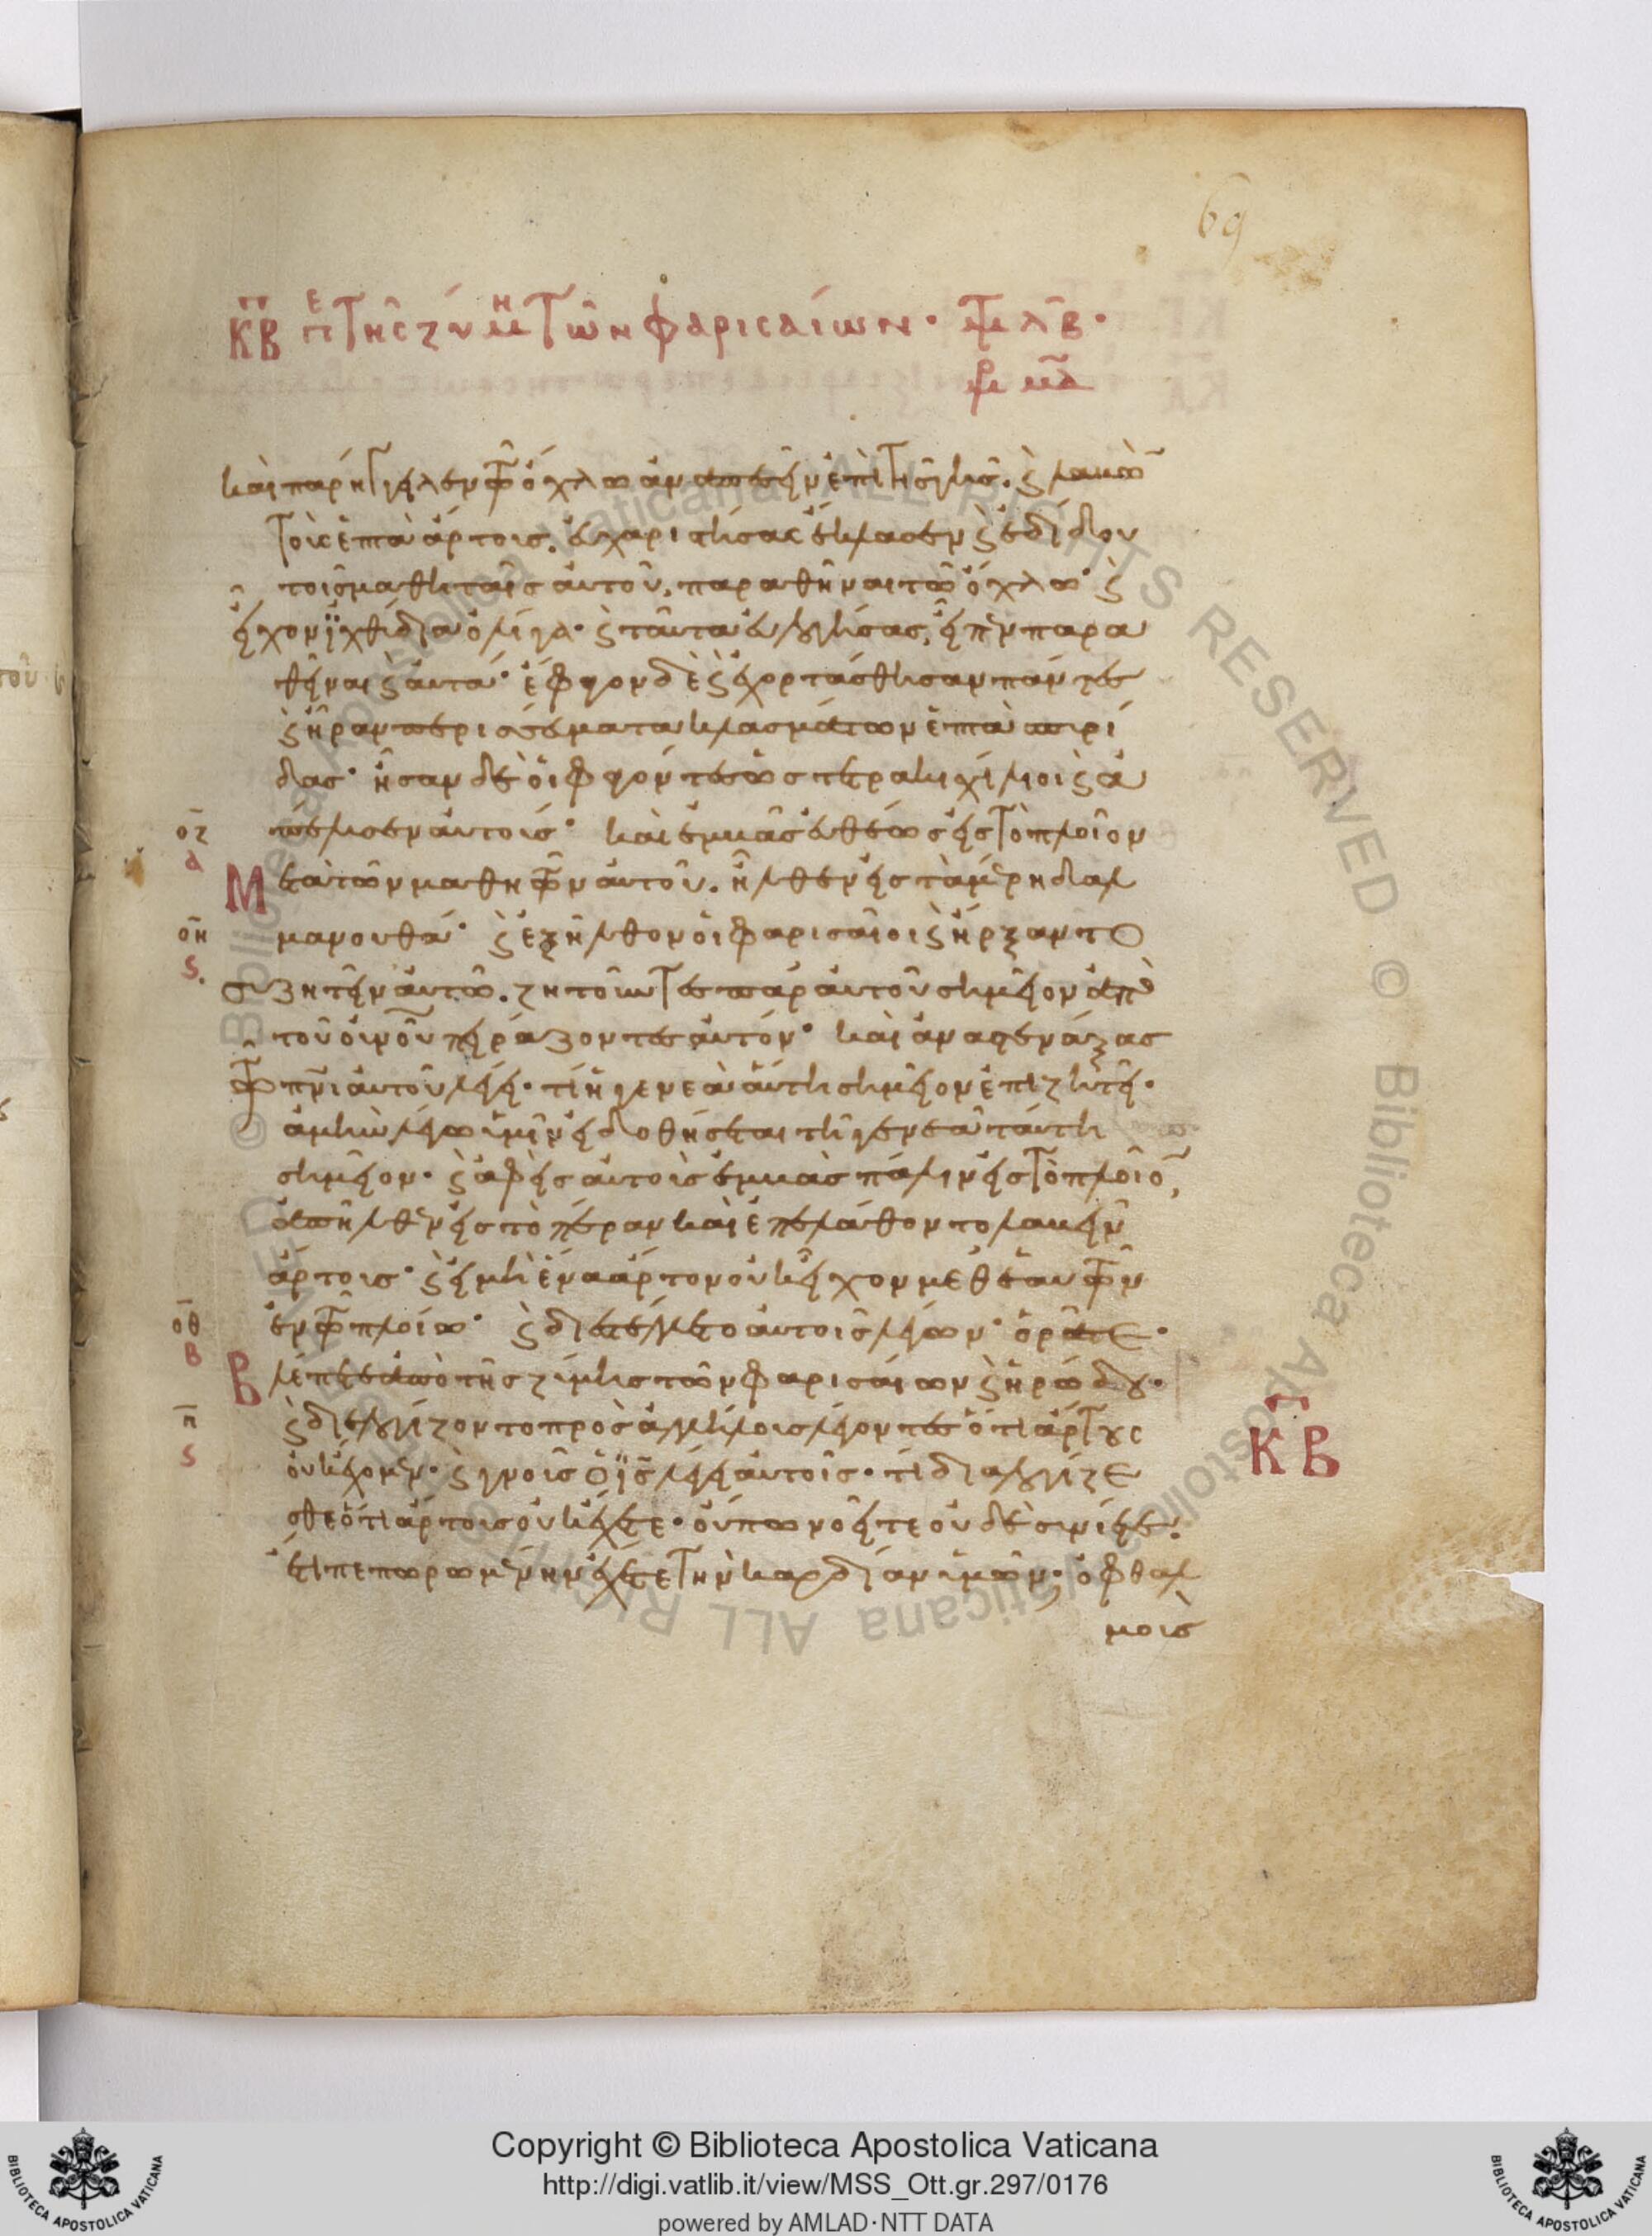 69
κβ πε τῆς ζύμης τῶν φαρισαίων· μτ λβ·
και παρήγγειλεν τῷ ὄχλω ἀναπεσεῖν ἐπὶ τῆς γῆς. ϗ λαβὼν
τοὺς ἑπτὰ ἄρτους. εὐχαριστήσας ἔκλασεν ϗ ἐδίδου
τοῖς μαθηταῖς αὐτοῦ, παραθῆναι τῶ ὄχλω· ϗ
εἶχον ἰχθύδια ὀλίγα· ϗ ταῦτα εὐλογήσας, εἶπεν παρα
θῆναι ϗ αὐτά· ἔφαγον δὲ ϗ ἐχορτάσθησαν πάντες
ϗ ἦραν περισσεύματα κλασμάτων ἑπτὰ σπυρί
δας· ἦσαν δὲ οἱ φαγόντες ὡς τετρακισχίλιοι ϗ ἀ
πέλυσεν αὐτούς· καὶ ἐμβὰς εὐθέως εἰς τὸ πλοῖον
οζ
α
Μετὰ τῶν μαθητῶν αὐτοῦ. ἦλθεν εἰς τὰ μέρη δαλ
μανουθά· ϗ ἐξῆλθον οἱ φαρισαῖοι ϗ ἤρξαντο
οη
ς
συζητεῖν αὐτῶ. ζητοῦντες παρ αὐτοῦ σημεῖον ἀπὸ
τοῦ οὐνοῦ πειράζοντες αὐτόν· καὶ ἀναστενάξας
τῷ πνι αὐτοῦ λέγει· τί ἡ γενεὰ αὕτη σημεῖον ἐπιζητεῖ·
ἀμὴν λέγω ὑμῖν εἰ δοθήσεται τῆ γενεᾶ ταύτη
σημεῖον· ϗ ἀφεὶς αὐτοὺς ἐμβὰς πάλιν εἰς τὸ πλοῖον,
ἀπῆλθεν εἰς τὸ πέραν καὶ ἐπελάθοντο λαβεῖν
ἄρτους· ϗ εἰ μὴ ἕνα ἄρτον οὐκ εἶχον μεθ ἑαυτῶν
ἐν τῷ πλοίω· ϗ διεστέλλετο αὐτοῖς λέγων· ὁρᾶτε·
οθ
β
Βλέπετε ἀπὸ τῆς ζύμης τῶν φαρισαίων ϗ ἡρώδου·
ϗ διελογίζοντο πρὸς ἀλλήλους λέγοντες ὅτι ἄρτους
π
ς
κβ
οὐκ ἔχομεν· ϗ γνοὺς ὁ ις λέγει αὐτοῖς· τί διαλογίζε
σθε ὅτι ἄρτους οὐκ ἔχετε· οὔπω νοεῖτε οὐδὲ συνίετε·
ἔτι πεπωρωμένην ἔχετε τὴν καρδίαν ὑμῶν; ὀφθαλ
μοὺς
© Biblioteca Apostolica Vaticana ALL RIGHTS RESERVED © Biblioteca Apostolica Vaticana ALL RIGHTS RESERVED
BIBLIOTECA APOSTOLICA VATICANA
Copyright © Biblioteca Apostolica Vaticana
http://digi.vatlib.it/view/MSS_Ott.gr.297/0176
powered by AMLAD·NTT DATA
BIBLIOTECA APOSTOLICA VATICANA